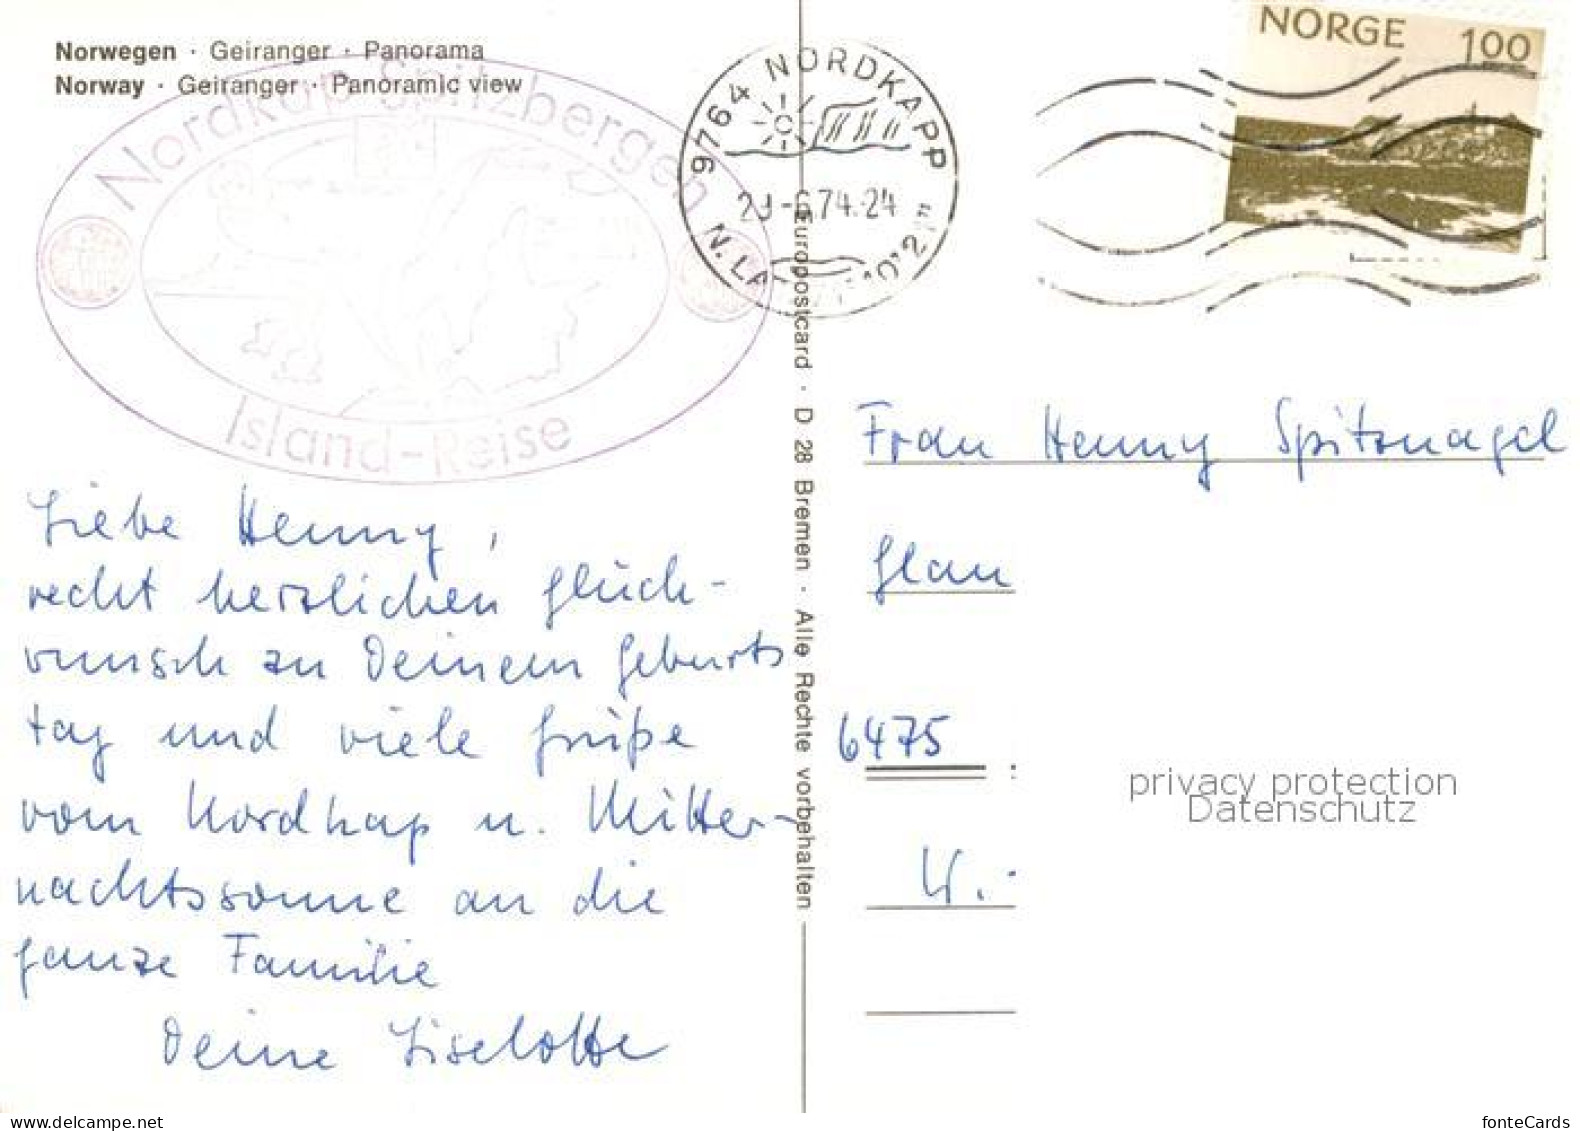 Norwegen · Geiranger · Panorama
Norway · Geiranger · Panoramic view
Nordkap Spitzbergen
Island-Reise
9764 NORDKAPP
74.24
NORGE 100
Europostcard · D 28 Bremen · Alle Rechte vorbehalten
Liebe Henny,
recht herzlichen Glück-
wunsch zu Deinem Geburts
tag und viele Grüße
vom Nordkap u. Mitter-
nachtssonne an die
ganze Familie
Deine Liselotte
Frau Henny Spitznagel
Glau
6475
W.-
privacy protection
Datenschutz
www.delcampe.net
fonteCards